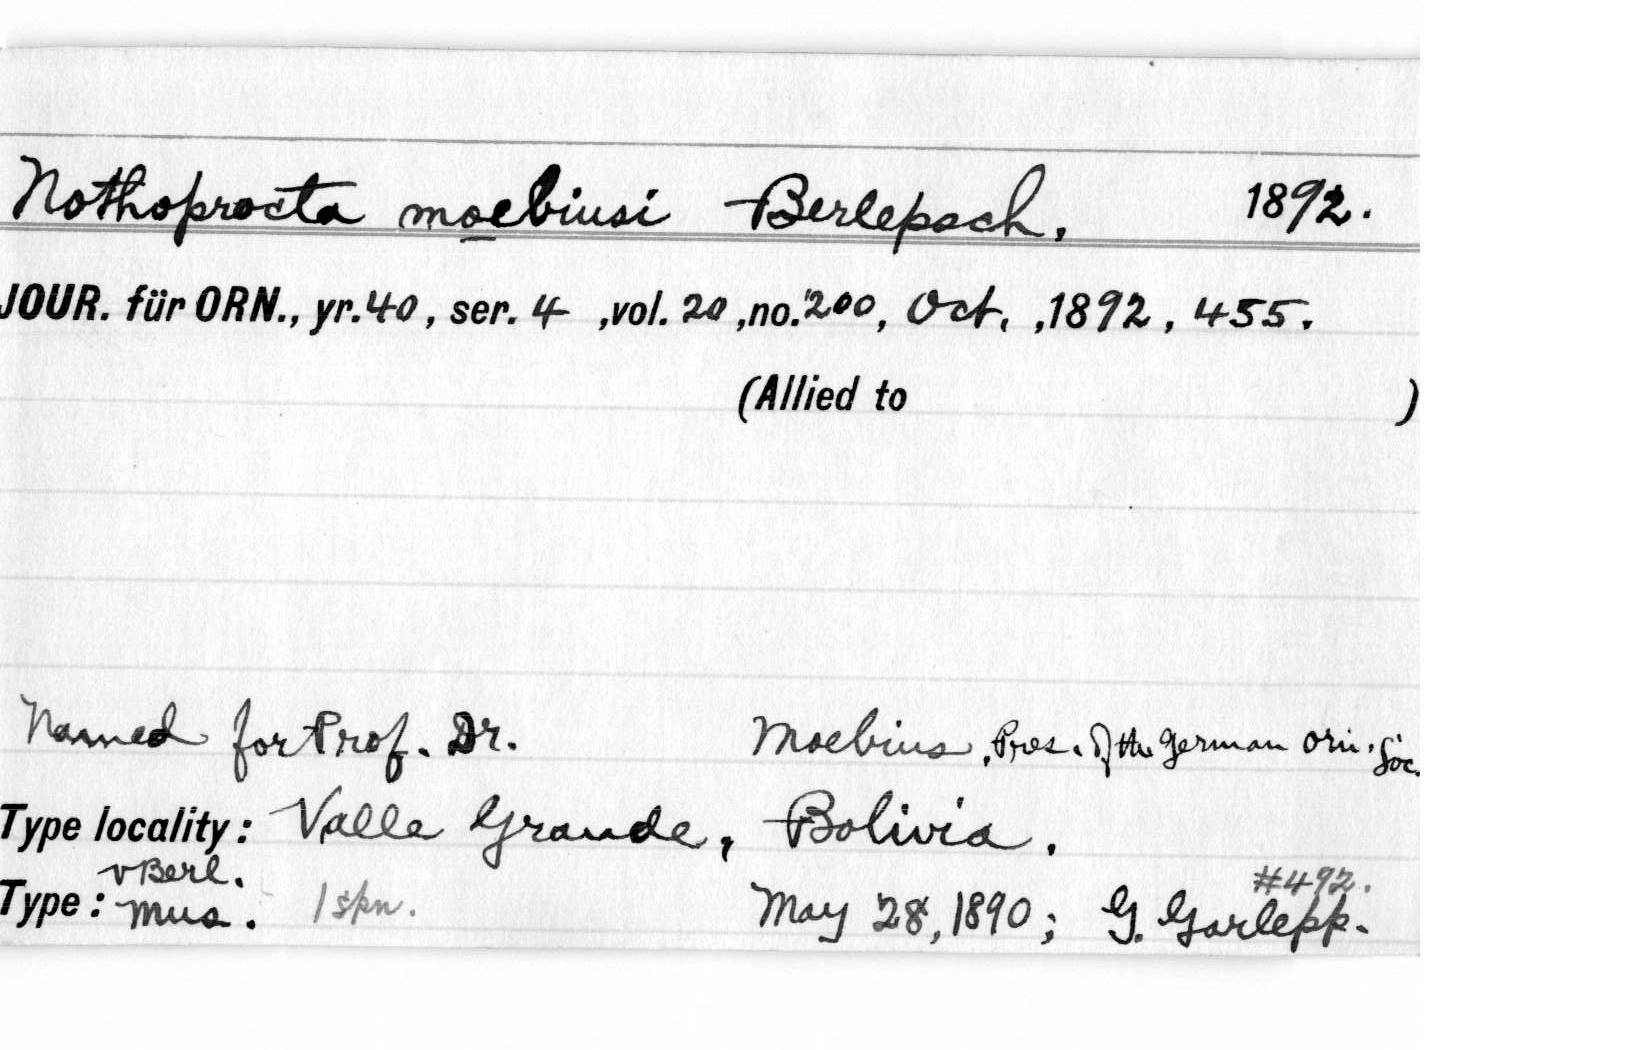 Nothoprocta moebiusi Berlepsch, 1892.
JOUR. für ORN., yr. 40, ser. 4 ,vol. 20 ,no. 200, Oct. ,1892, 455.
(Allied to )
Named for Prof. Dr. Moebius, Pres. of the German Orn. Soc.
Type locality: Valle Grande, Bolivia.
vBerl. #492.
Type: Mus. 1 spn. May 28, 1890; G. Garlepp.